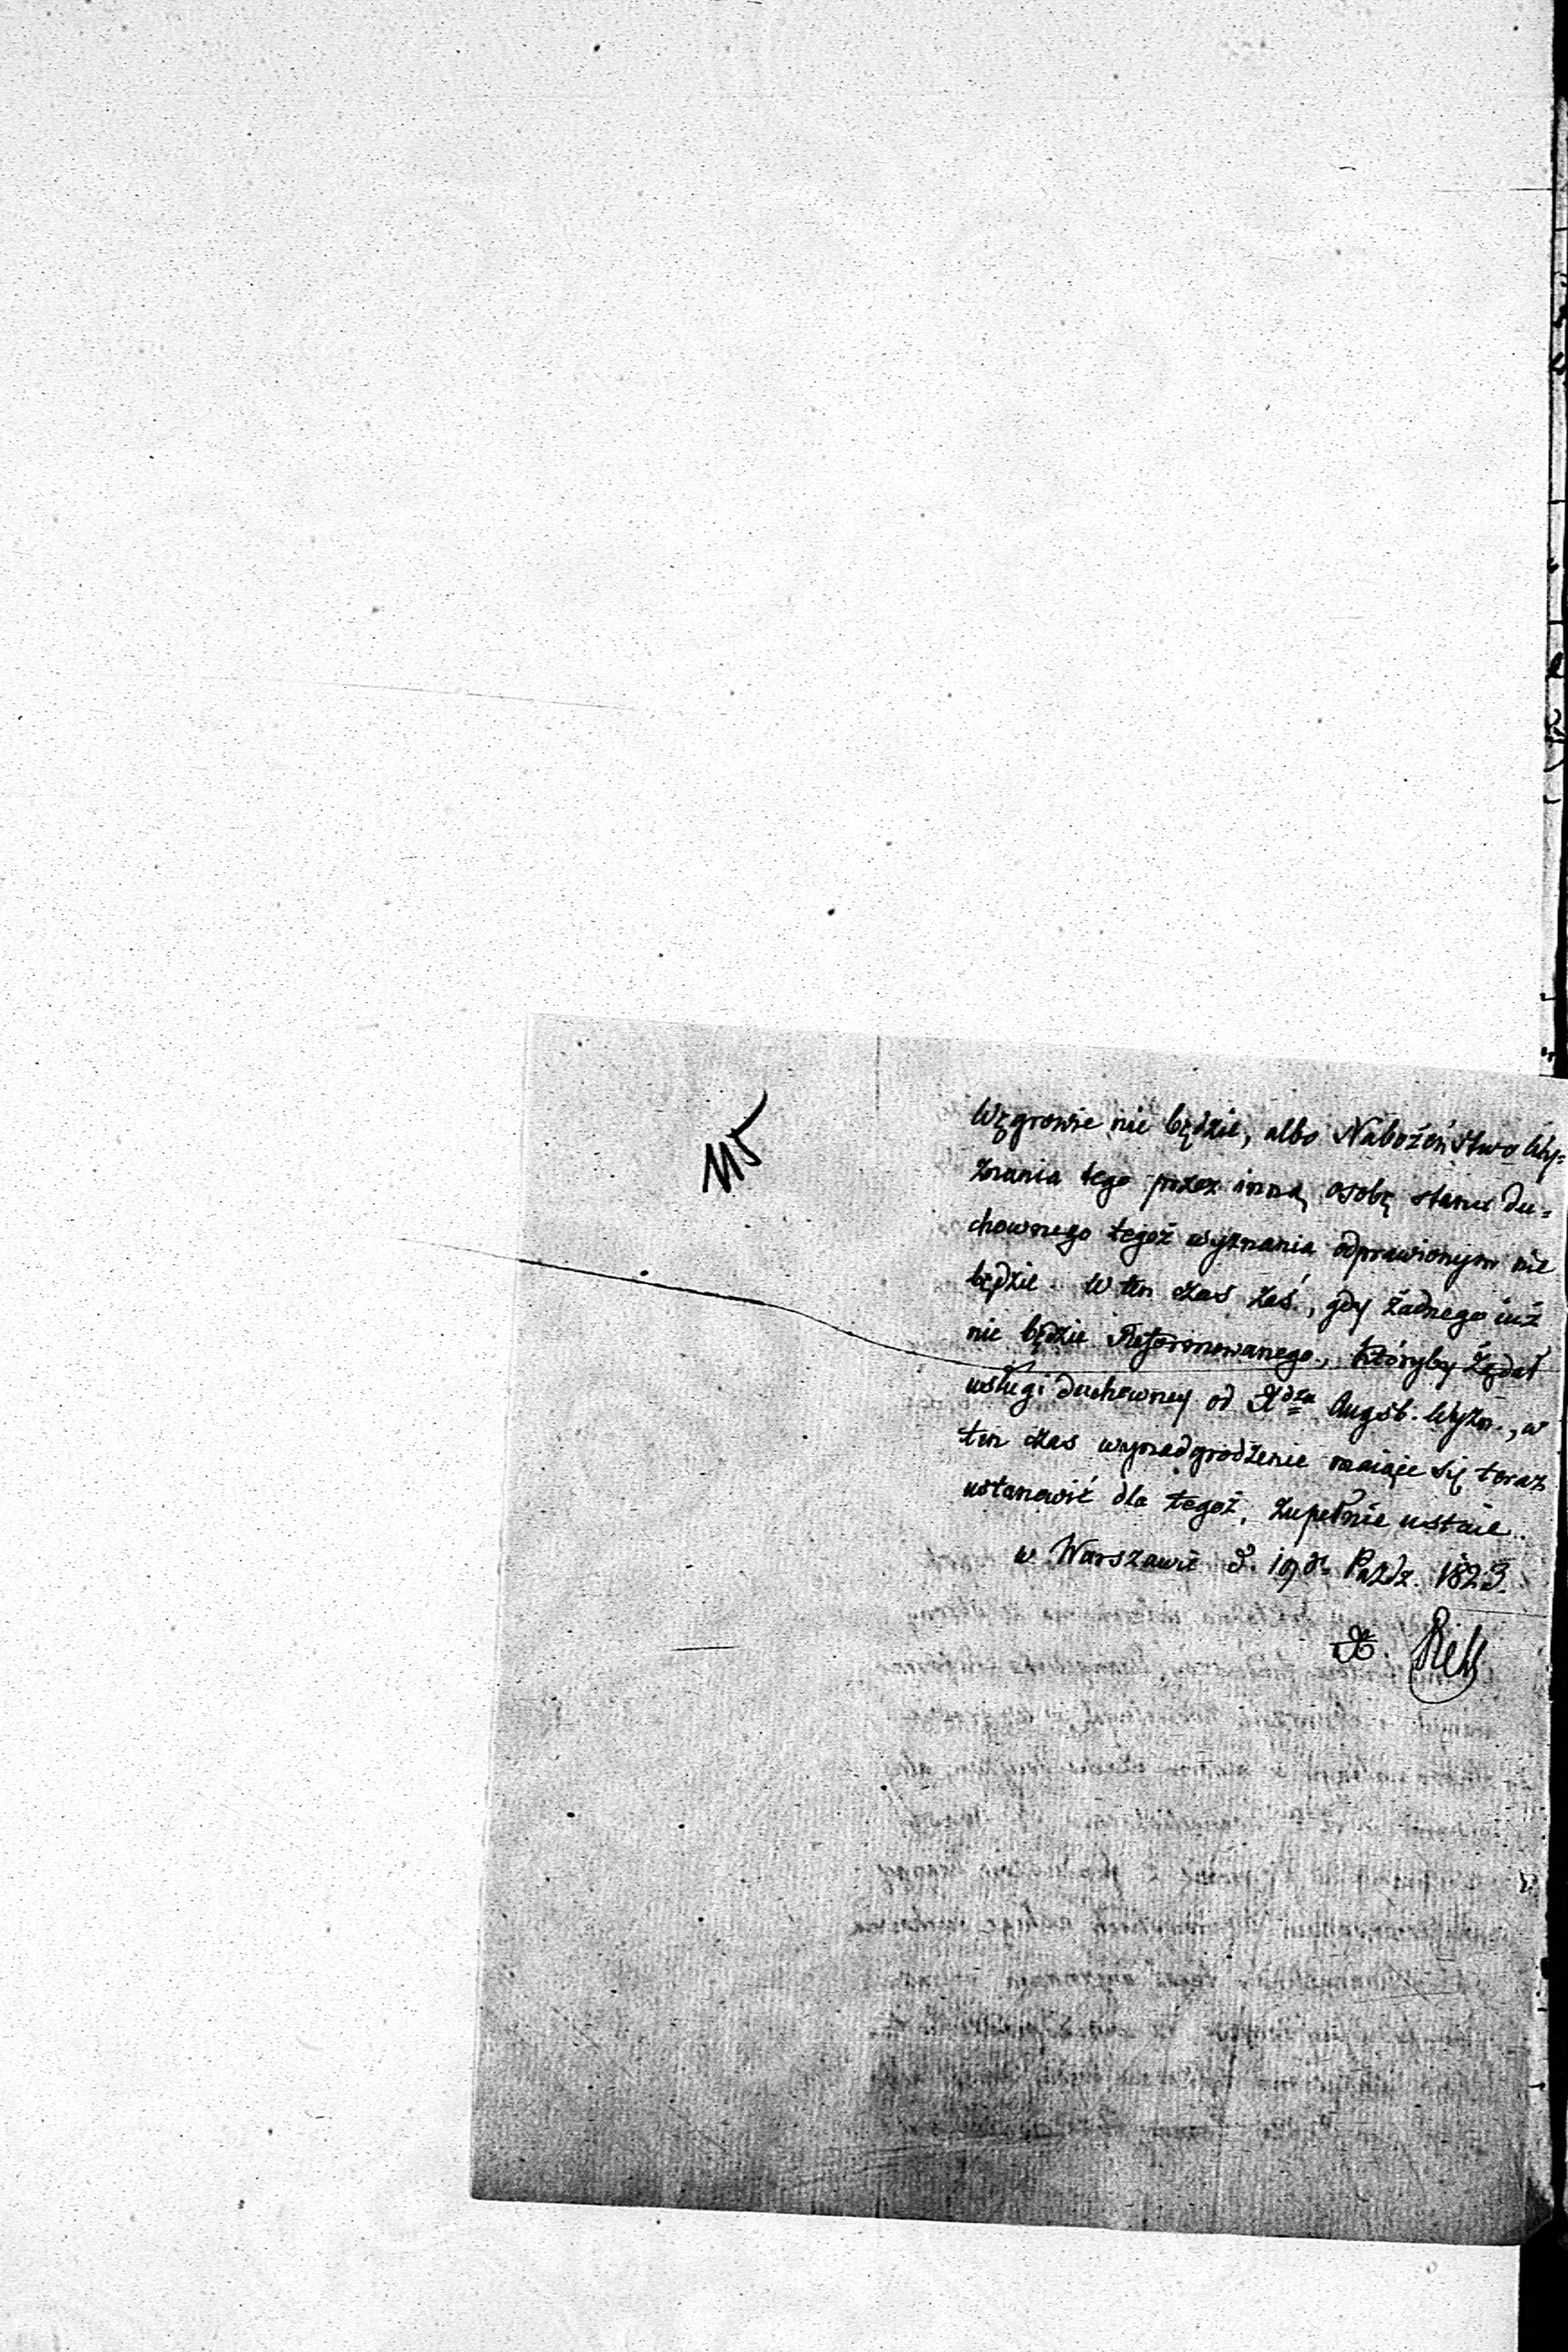 Węgrowie nie będzie, albo Nabożeństwo Wy=
znania tego przez inną osobę stanu du=
chownego tegoż wyznania odprawionym nie
będzie. W ten czas zaś, gdy żadnego iuż
nie będzie Reformowanego, któryby żądał
usługi duchowney od Xdza Augsb. Wyzn., w
ten czas wynadgrodzenie maiące się teraz
ustanowić dla tegoż, zupełnie ustaie.
w Warszawie d. 19 Paźdz. 1823.
X.